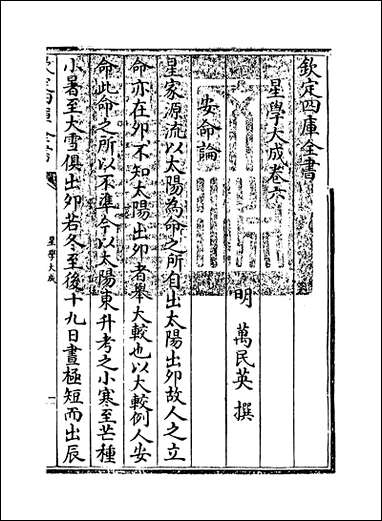 欽定四庫全書
星學大成卷六
明 萬民英 撰
安命論
星家源流以太陽為命之所自出太陽出卯故人之立
命亦在卯不知太陽出卯者舉大較也以大較例人安
命此命之所以不準今以太陽東升考之小寒至芒種
小暑至大雪俱出卯若冬至後十九日晝極短而出辰
星學大成